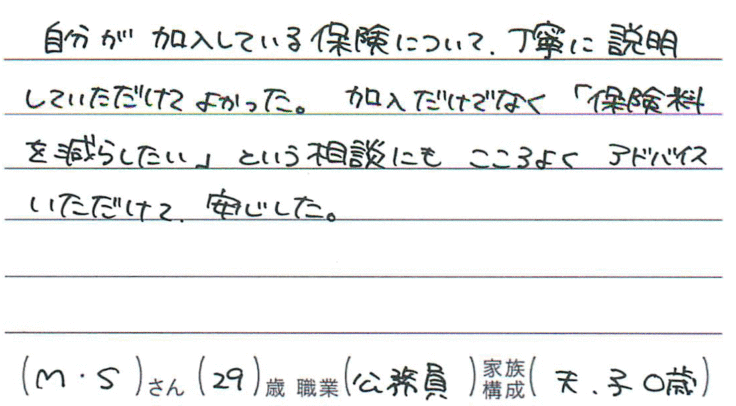 自分が 加入している保険について、丁寧に 説明
していただけて よかった。 加入だけでなく 「保険料
を減らしたい」 という相談にも こころよく アドバイス
いただけて、安心した。
(M・S)さん (29)歳 職業(公務員)家族構成(夫、子0歳)